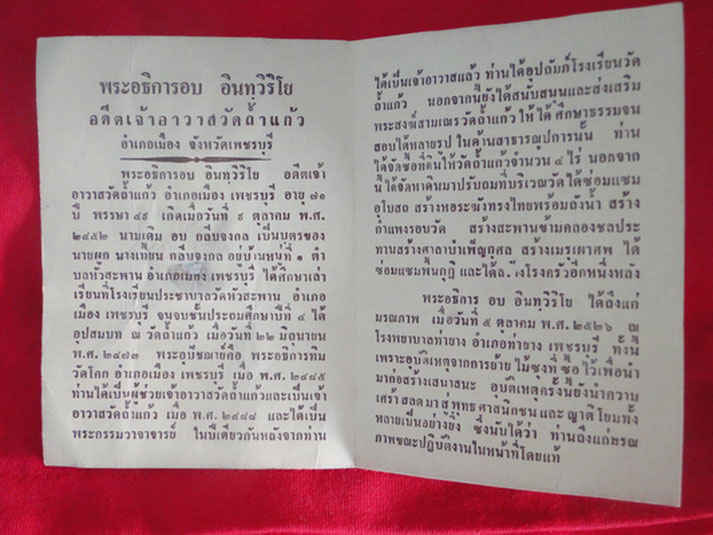 พระอธิการอบ อินทวิริโย
อดีตเจ้าอาวาสวัดถ้ำแก้ว
อำเภอเมือง จังหวัดเพชรบุรี
พระอธิการอบ อินทวิริโย อดีตเจ้า
อาวาสวัดถ้ำแก้ว อำเภอเมือง เพชรบุรี อายุ ๗๑
ปี พรรษา ๔๙ เกิดเมื่อวันที่ ๙ ตุลาคม พ.ศ.
๒๔๕๒ นามเดิม อบ กลีบจงกล เป็นบุตรของ
นายผูก นางเทียน กลีบจงกล อยู่บ้านหมู่ที่ ๑ ตำ
บลหัวสะพาน อำเภอเมือง เพชรบุรี ได้ศึกษาเล่า
เรียนที่โรงเรียนประชาบาลวัดหัวสะพาน อำเภอ
เมือง เพชรบุรี จนจบชั้นประถมศึกษาปีที่ ๔ ได้
อุปสมบท ณ วัดถ้ำแก้ว เมื่อวันที่ ๒๒ มิถุนายน
พ.ศ. ๒๔๗๓ พระอุปัชฌาย์คือ พระอธิการทิม
วัดโคก อำเภอเมือง เพชรบุรี เมื่อ พ.ศ. ๒๔๘๕
ท่านได้เป็นผู้ช่วยเจ้าอาวาสวัดถ้ำแก้วและเป็นเจ้า
อาวาสวัดถ้ำแก้ว เมื่อ พ.ศ. ๒๔๘๘ และได้เป็น
พระกรรมวาจาจารย์ ในปีเดียวกันหลังจากท่าน
ได้เป็นเจ้าอาวาสแล้ว ท่านได้อุปถัมภ์โรงเรียนวัด
ถ้ำแก้ว นอกจากนี้ยังได้สนับสนุนและส่งเสริม
พระสงฆ์สามเณรวัดถ้ำแก้วให้ได้ศึกษาธรรมจน
สอบได้หลายรูป ในด้านสาธารณูปการนั้น ท่าน
ได้จัดซื้อที่ดินให้วัดถ้ำแก้วจำนวน ๔ ไร่ นอกจาก
นี้ ได้จัดหาดินมาปรับถมที่บริเวณวัด ได้ซ่อมแซม
อุโบสถ สร้างหอระฆังทรงไทยพร้อมถังน้ำ สร้าง
กำแพงรอบวัด สร้างสะพานข้ามคลองชลประ
ทานสร้างศาลาบำเพ็ญกุศล สร้างเมรุเผาศพ ได้
ซ่อมแซมพื้นกุฏิ และได้ โรงครัวอีกหนึ่งหลัง
พระอธิการ อบ อินทวิริโย ได้ถึงแก่
มรณภาพ เมื่อวันที่ ๕ ตุลาคม พ.ศ. ๒๕๒๖ ณ
โรงพยาบาลท่ายาง อำเภอท่ายาง เพชรบุรี ทั้งนี้
เพราะอุบัติเหตุจากการย้าย ไม้ซุงที่ ซื้อ ไว้เพื่อนำ
มาก่อสร้างเสนาสนะ อุบัติเหตุครั้งนี้ยังนำความ
เศร้า สลด มาสู่ พุทธ ศาสนิกชน และ ญาติ โยมทั้ง
หลายเป็นอย่างยิ่ง ซึ่งนับได้ว่า ท่านถึงแก่มรณ
ภาพขณะปฏิบัติงานในหน้าที่โดยแท้